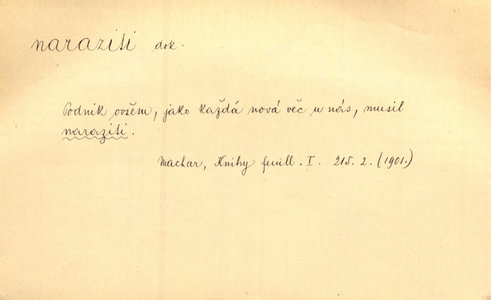 naraziti dok.
Podnik ovšem, jako každá nová věc u nás, musil
naraziti.
Machar, Knihy feuill. I. 215. 2. (1901.)